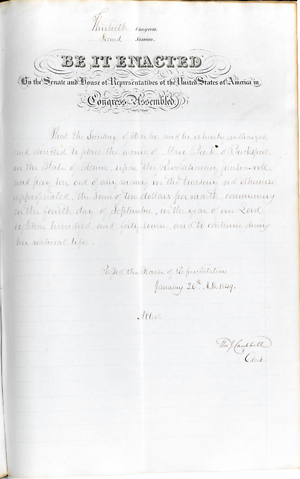 Thirtieth Congress
Second Session
BE IT ENACTED
By the Senate and House of Representatives of the United States of America in
Congress Assembled
That the Secretary of War be, and he is hereby authorized
and directed to place the name of of
in the State of Maine, upon the Revolutionary pension roll
and pay her out of any money in the treasury not otherwise
appropriated, the sum of ten dollars per month, commencing
on the fourth day of September, in the year of our Lord
eighteen hundred and forty seven, and to continue during
her natural life.
Passed the House of Representatives
January 26th A.D. 1849.
Attest
Tho J Campbell
Clerk